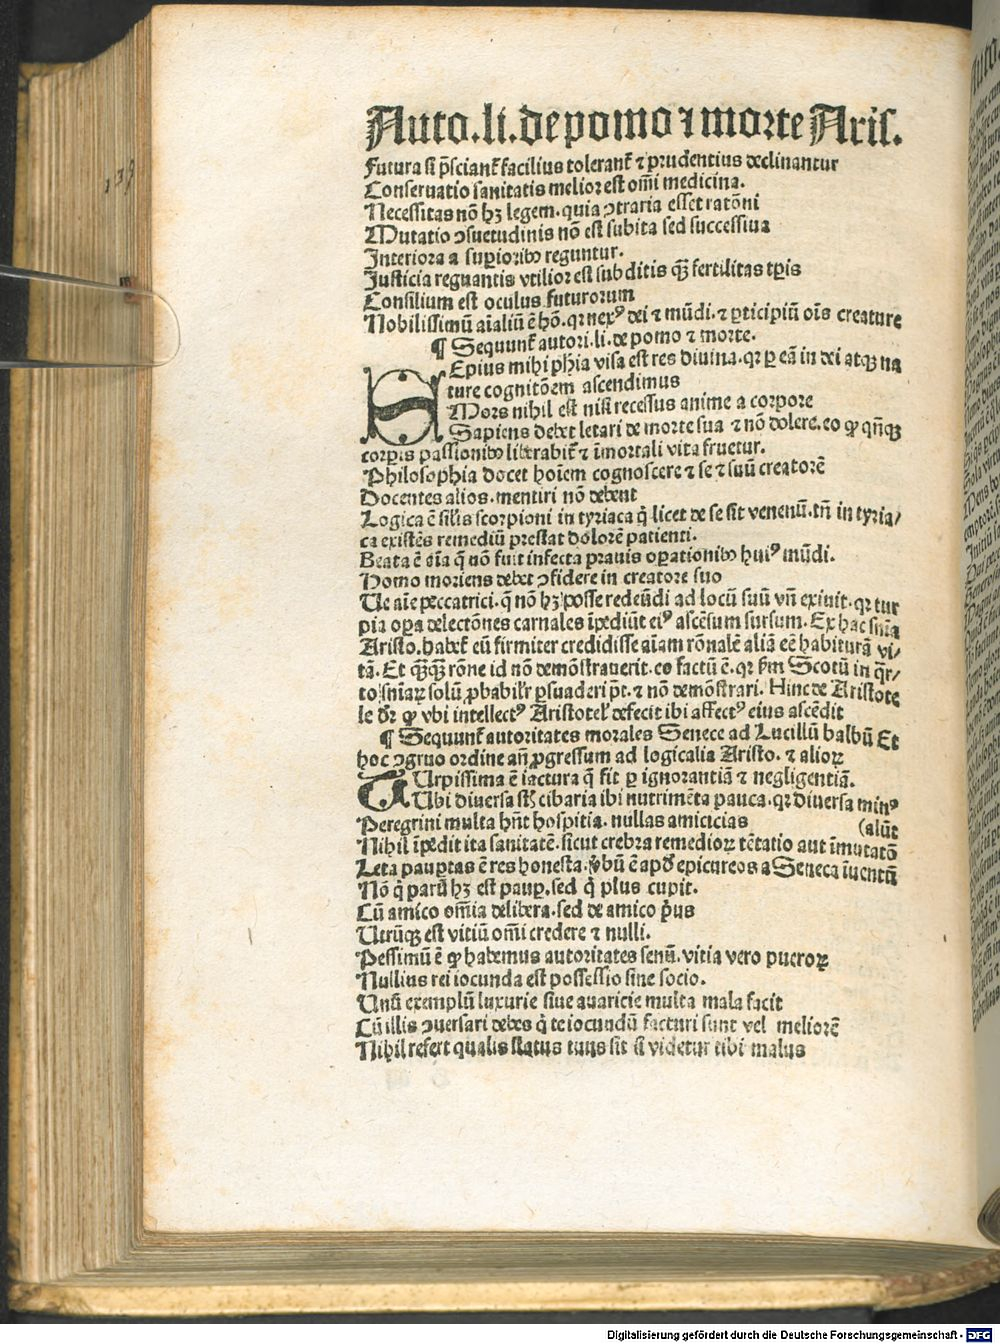 Auto.li.de pomo ⁊ morte Aris.
139
Futura si p̄sciant᷑ facilius tolerant᷑ ⁊ prudentius declinantur
Conseruatio sanitatis melior est om̄i medicina.
Necessitas nō hꝫ legem. quia ↄtraria esset ratōni
Mutatio ↄsuetudinis nō est subita sed successiua
Interiora a suꝑioribꝰ reguntur.
Justicia regnantis vtilior est subditis qᷓꝫ fertilitas tꝑis
Consilium est oculus futurorum
Nobilissimū aīaliū ē hō. qꝛ nexꝰ dei ⁊ mūdi. ⁊ ꝑticipiū oīs creature
¶ Sequunt᷑ autori. li. de pomo ⁊ morte.
SEpius mihi ph̄ia visa est res diuina. qꝛ ꝑ eā in dei atqꝫ na
ture cognitōem ascendimus
Mors nihil est nisi recessus anime a corpore
Sapiens debet letari de morte sua ⁊ nō dolere. eo ꝙ qn̄qꝫ
corpis passionibꝰ liberabit᷑ ⁊ īmortali vita fruetur.
Philosophia docet hoīem cognoscere ⁊ se ⁊ suū creatorē
Docentes alios. mentiri nō debent
Logica ē sil̄is scorpioni in tyriaca q̇ licet de se sit venenū. tn̄ in tyria/
ca existēs remediū prestat dolorē patienti.
Beata ē aīa q̄ nō fuit infecta prauis oꝑationibꝰ huiꝰ mūdi.
Homo moriens debet ↄfidere in creatore suo
Ue aīe peccatrici. q̄ nō hꝫ posse redeūdi ad locū suū vn̄ exiuit. qꝛ tur
pia oꝑa delectōnes carnales īpediūt eiꝰ ascēsum sursum. Ex hac sn̄ia
Aristo. habet᷑ eū firmiter credidisse aīam rōnalē aliā eē habiturā vi/
tā. Et qᷓꝫqᷓꝫ rōne id nō demōstrauerit. eo factū ē. qꝛ ẜm Scotū in q̄r/
to sn̄iaꝝ solū ꝓbabilr̄ ꝑsuaderi pōt. ⁊ nō demōstrari. Hinc de Aristote
le dr̄ ꝙ vbi intellectꝰ Aristotel̓ defecit ibi affectꝰ eius ascēdit
¶ Sequunt᷑ autoritates morales Senece ad Lucillū balbū Et
hoc ↄgruo ordine an̄ ꝓgressum ad logicalia Aristo. ⁊ alioꝝ
TUrpissima ē iactura q̄ fit ꝑ ignorantiā ⁊ negligentiā.
Ubi diuersa st̄ cibaria ibi nutrimēta pauca. qꝛ diuersa minꝰ
Peregrini multa hn̄t hospitia. nullas amicicias (alūt
Nihil īpedit ita sanitatē. sicut crebra remedioꝝ tētatio aut īmutatō
Leta pauꝑtas ē res honesta. ṽbū ē apd̓ epicureos a Seneca īuentū
Nō q̇ parū hꝫ est pauꝑ. sed q̇ plus cupit.
Cū amico om̄ia delibera. sed de amico pͥus
Utrūqꝫ est vitiū om̄i credere ⁊ nulli.
Pessimū ē ꝙ habemus autoritates senū. vitia vero pueroꝝ
Nullius rei iocunda est possessio sine socio.
Unū exemplū luxurie siue auaricie multa mala facit
Cū illis ↄuersari debes q̇ te iocundū facturi sunt vel meliorē
Nihil refert qualis status tuus sit si videtur tibi malus
Digitalisierung gefördert durch die Deutsche Forschungsgemeinschaft - DFG